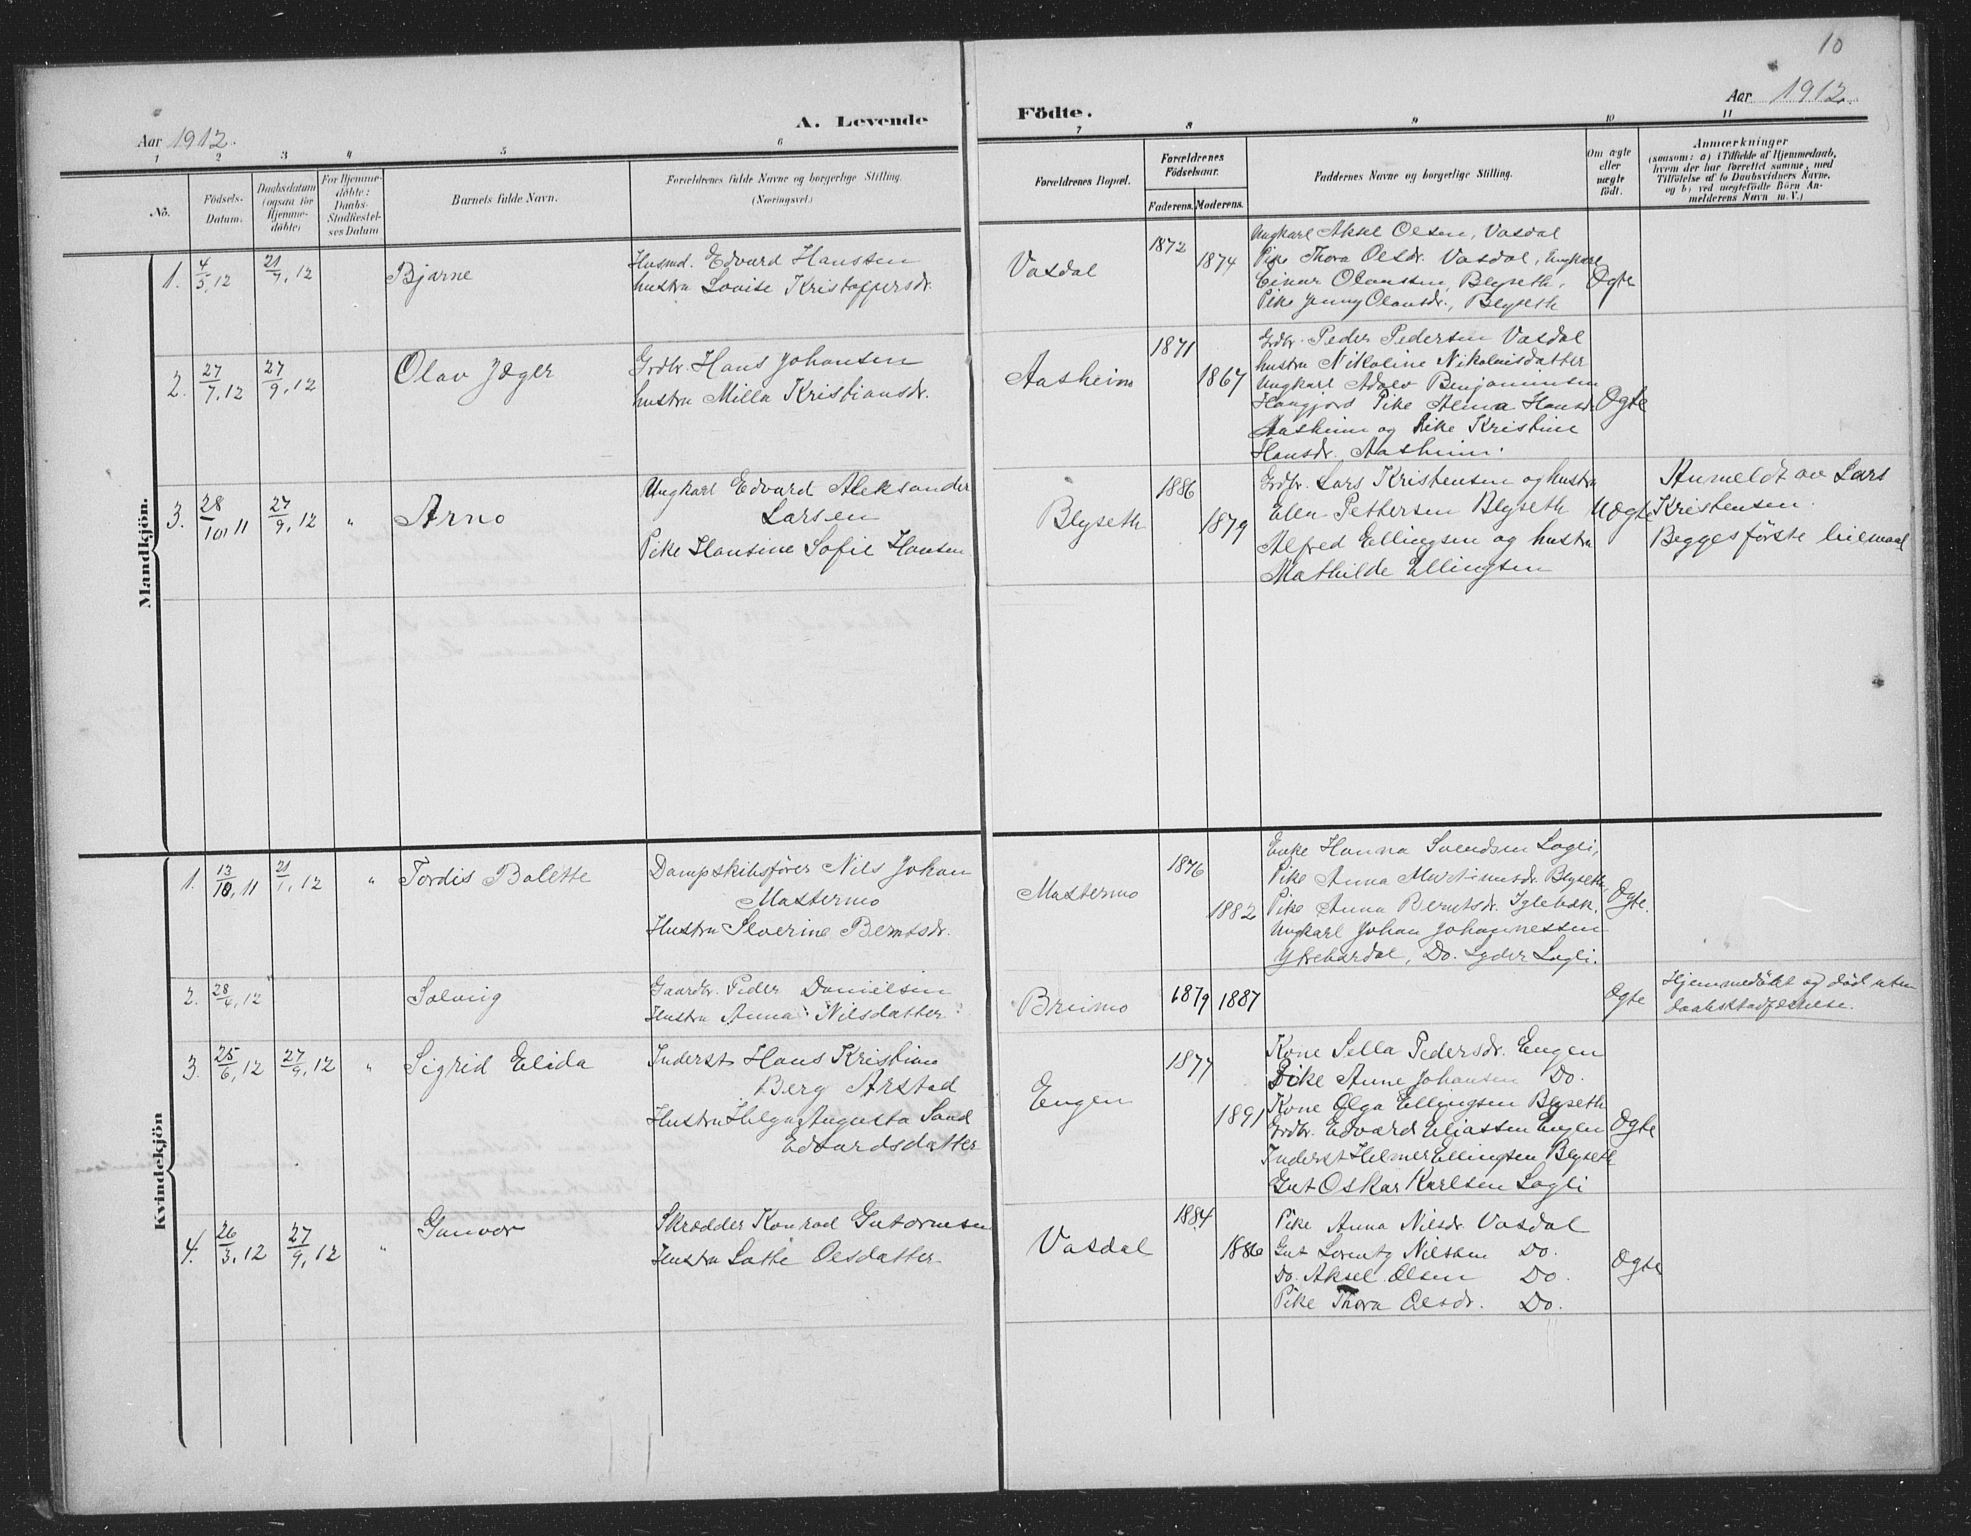 10
Aar 1912.
A. Levende
Födte.
Aar 1912.
1 2 3 4 5 6 7 8 9 10 11
No.
Födsels-
Datum.
Daabsdatum
(ogsaa for
Hjemme-
döbte)
For Hjemme-
döbte:
Daabs-
Stadfæstel-
ses Datum
Barnets fulde Navn.
Forældrenes fulde Navne og borgerlige Stilling.
(Næringsvei.)
Forældrenes Bopæl.
Forældrenes
Födselsaar.
Faderens. Moderens.
Faddernes Navne og borgerlige Stilling.
Om ægte
eller
uægte
födt.
Anmærkninger
(saasom: a) i Tilfælde af Hjemmedaab,
hvem der har forrettet samme, med
Tilföielse af to Daabsvidners Navne,
og b) ved uægtefödte Börn An-
melderens Navn m. V.)
Mandkjön.
1. 4/5, 12 21/7, 12 Bjarne
Husmd. Edvard Hansen
hustru Lovise Kristoffersdr.
Vasdal 1872 1874
Ungkarl Aksel Olsen, Vasdal
Pike Thora Olsdr. Vasdal, Ungkarl
Einar Olaussen, Blyseth,
Pike Jenny Olausdr., Blyseth
Ægte
2. 27/7, 12 27/9, 12 Olav Jæger
Grdbr. Hans Johansen
hustru Milla Kristiansdr.
Aasheim 1871 1867
Grdbr. Peder Pedersen Vasdal
hustru Nikoline Nikolaisdatter
Ungkarl Adolv Benjaminsen
Haugjord Pike Alma Hansdr.
Aasheim og Pike Kristine
Hansdr. Aasheim.
Ægte
3. 28/10, 11 27/9, 12 " Arno
Ungkarl Edvard Aleksander
Larsen
Pike Hansine Sofie Hansen
Blyseth 1886 1879
Grdbr. Lars Kristensen og hustru
Elen Pettersen Blyseth
Alfred Ellingsen og hustru
Mathilde Ellingsen
Uægte
Anmeldt av Lars
Kristensen.
Begges förste leiermaal
Kvindekjön
1. 13/10, 11 21/1, 12 " Tordis Bolette
Dampskibsförer Nils Johan
Mastermo
Hustru Severine Berntsdr.
Mastermo 1876 1882
Enke Hanna Svendsen Lagli,
Pike Anna Martinusdr. Blyseth,
Pike Anna Berntsdr. Iglebæk,
Ungkarl Johan Johannessen
Ytrebardal, Do. Lyder Lagli.
Ægte.
2. 28/4, 12 Solveig
Gaardbr. Peder Danielsen
Hustru Anna Nilsdatter
Breimo 1879 1887
Ægte
Hjemmedöbt og död uten
daabsstadfæstelse.
3. 25/6, 12 27/9, 12 " Sigrid Elida
Inderst Hans Kristian
Berg Arstad
Hustru Helga Augusta Sand
Edvardsdatter
Engen 1877 1891
Kone Sella Pedersdr. Engen
Pike Anne Johansen Do.
Kone Olga Ellingsen Blyseth
Grdbr. Edvard Eliassen Engen
Inderst Helmer Ellingsen Blyseth
Gut Oskar Karlsen Lagli
Ægte
4. 26/3, 12 27/9, 12 " Gunvor
Skrædder Konrad Guttormsen
Hustru Lotte Olsdatter
Vasdal 1884 1886
Pike Anna Nilsdr Vasdal
Gut Lorentz Nilsen Do.
Do. Aksel Olsen Do.
Pike Thora Olsdr. Do.
Ægte